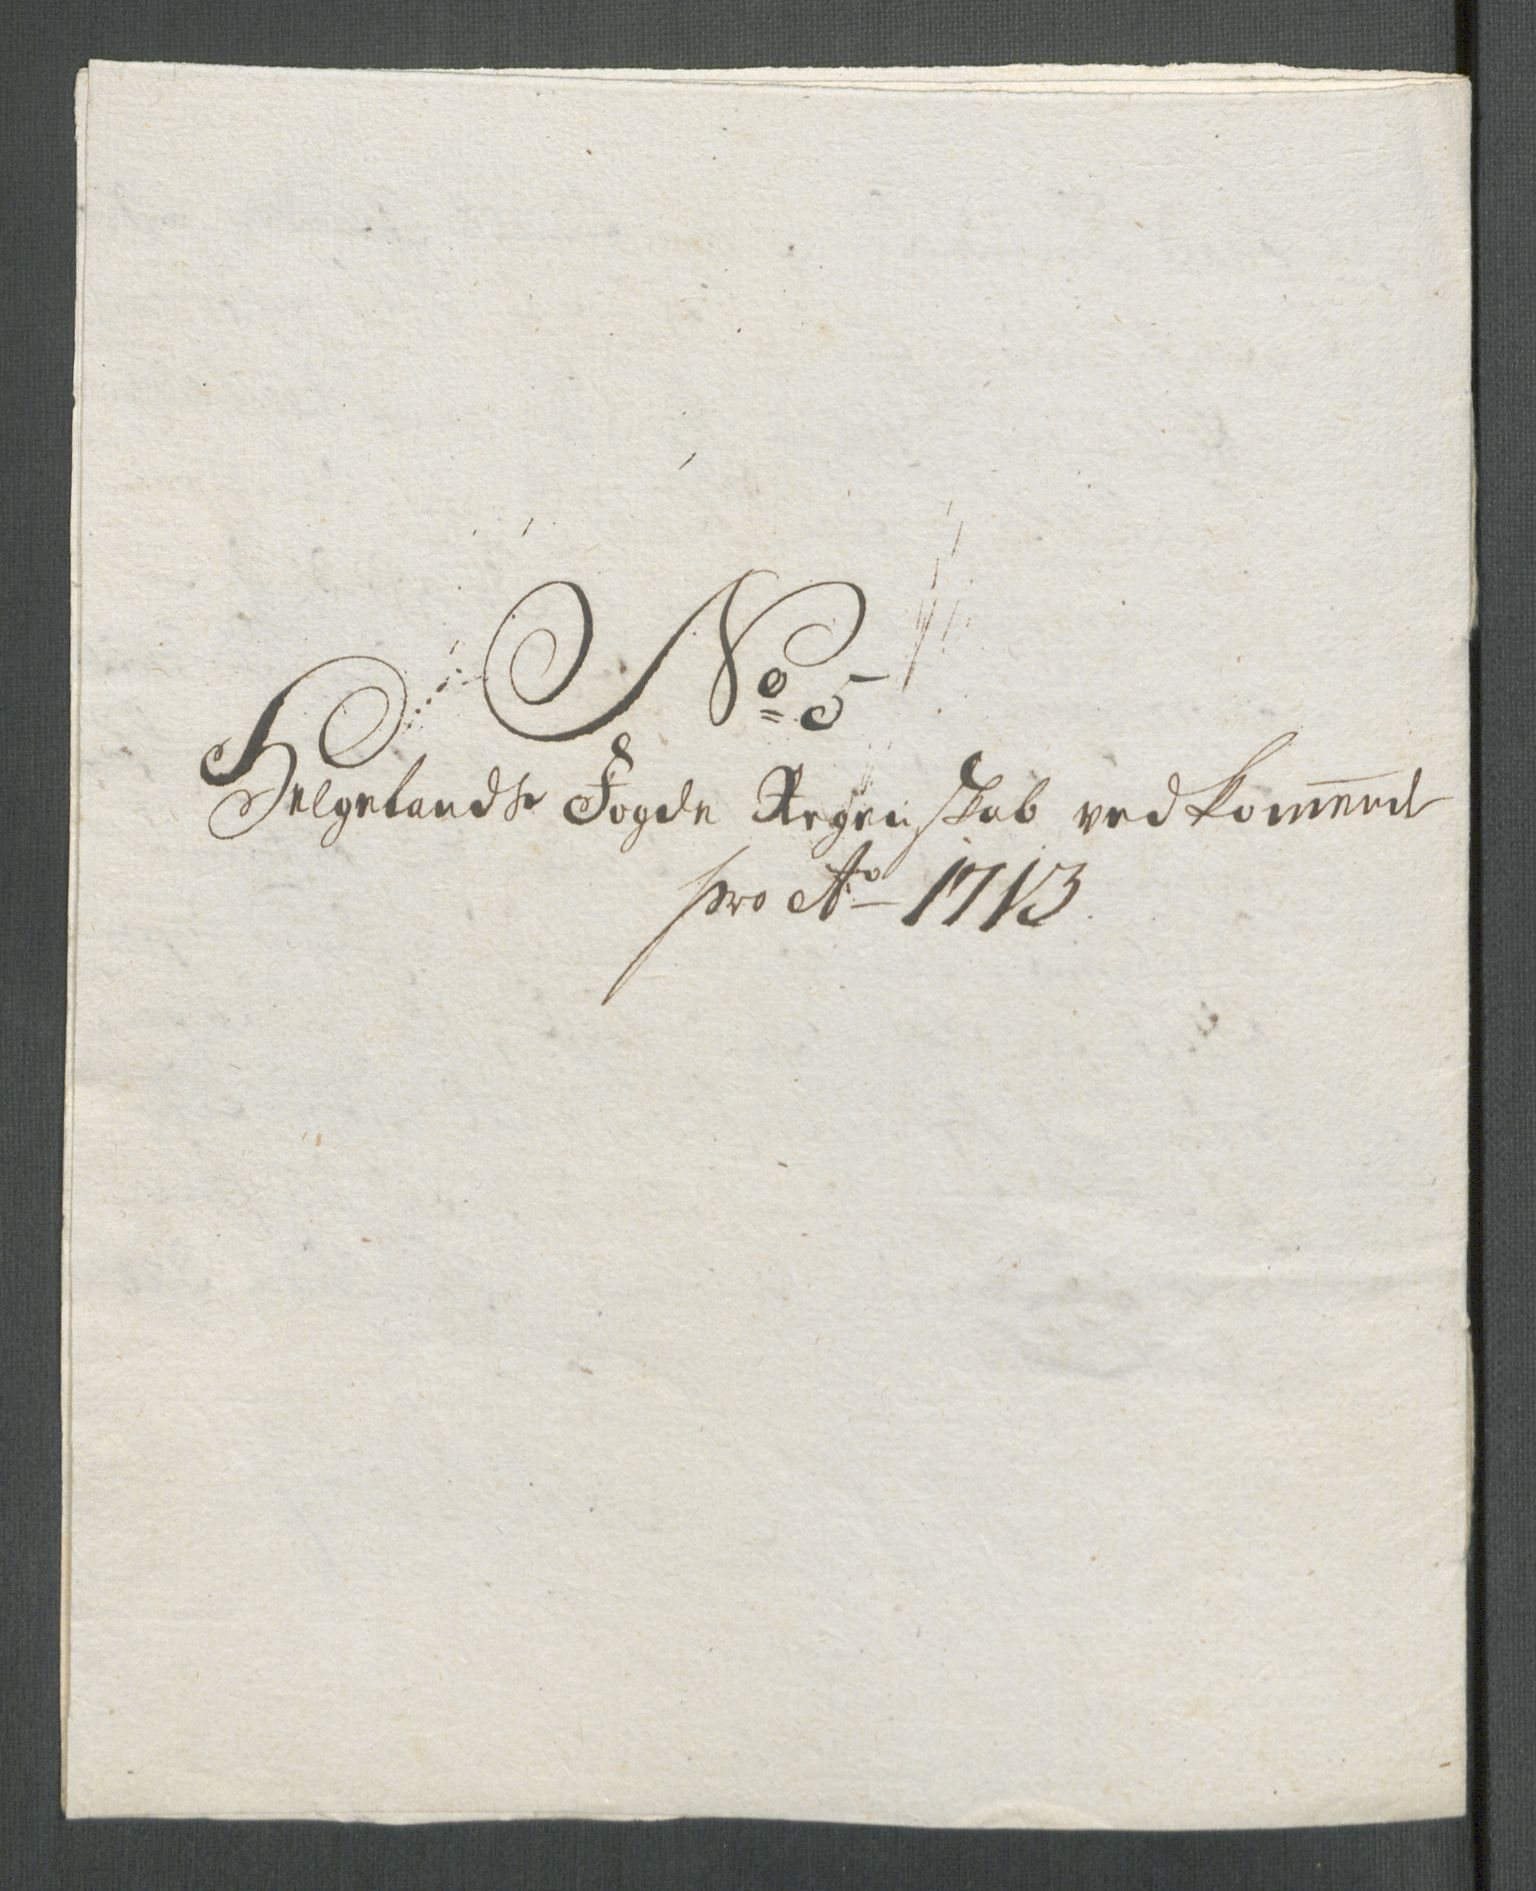 No 5
Helgelandsr Fogde Regenskab ved komend
pro Ao 1713